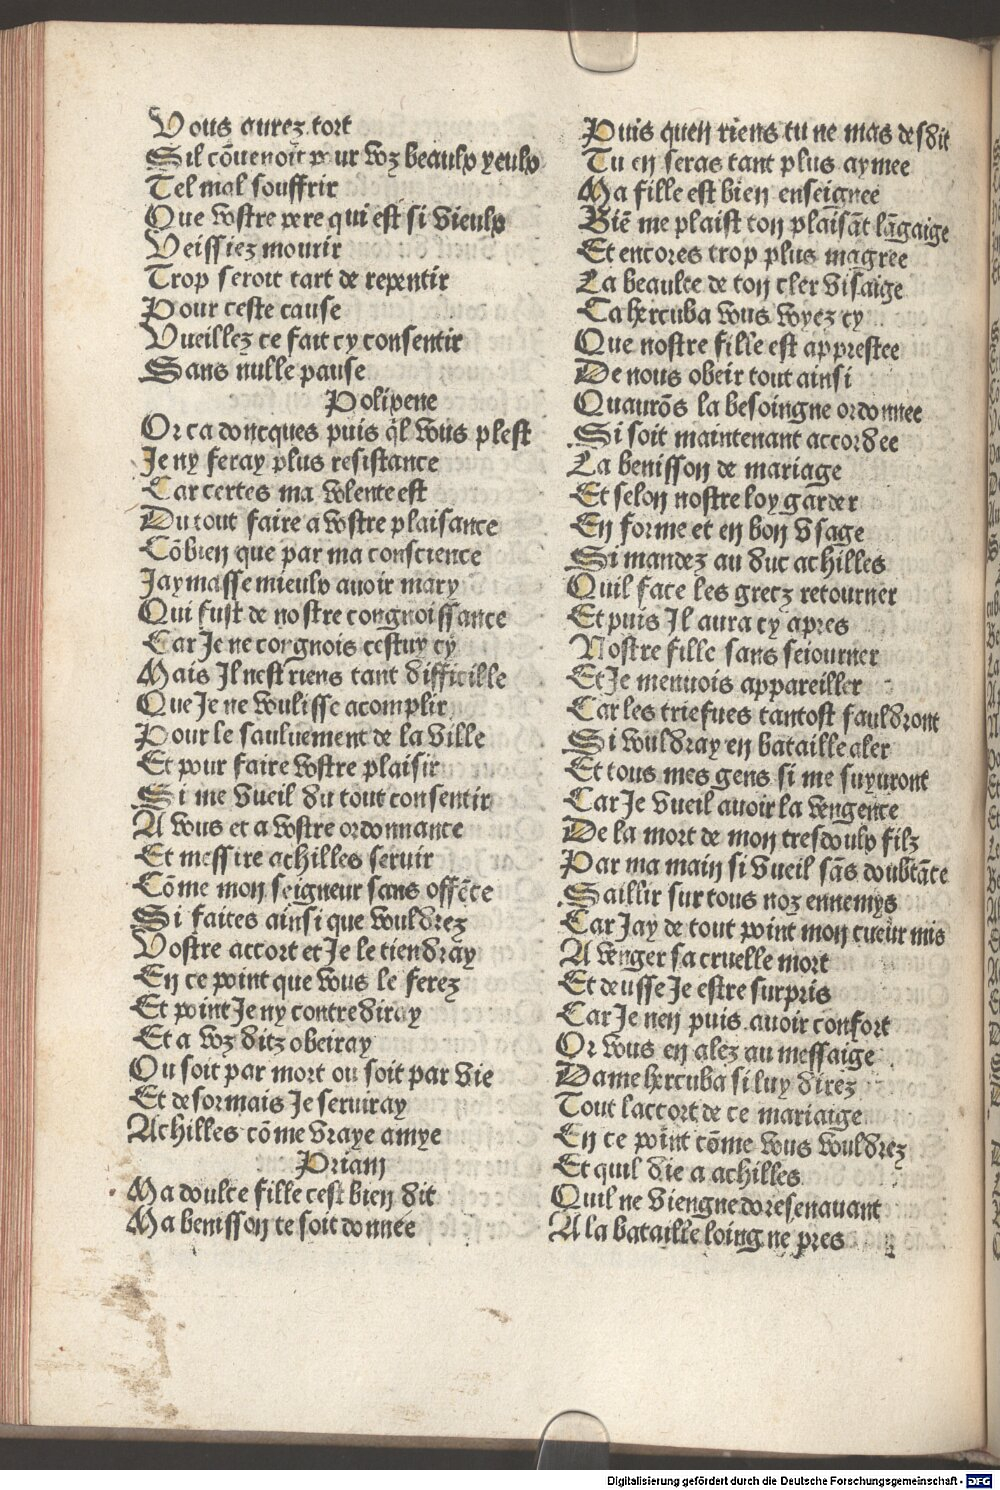 Vous aurez tort
Sil cōuenoit pour voz beaulx yeulx
Tel mal souffrir
Que vostre pere qui est si vieulx
Veissiez mourir
Trop seroit tart de repentir
Pour ceste cause
Vueillez ce fait cy consentir
Sans nulle pause
Polixene
Or ca doncques puis q̄l vous plest
Je ny feray plus resistance
Car certes ma volente est
Du tout faire a vostre plaisance
Cōbien que par ma conscience
Jaymasse mieulx auoir mary
Qui fust de nostre congnoissance
Car Je ne congnois cestuy cy
Mais Il nest riens tant difficille
Que Je ne voulisse acomplir
Pour le sauluement de la ville
Et pour faire vostre plaisir
Si me vueil du tout consentir
A vous et a vostre ordonnance
Et messire achilles seruir
Cōme mon seigneur sans offēce
Si faites ainsi que vouldrez
Vostre accort et Je le tiendray
En ce point que vous le ferez
Et point Je ny contrediray
Et a voz ditz obeiray
Ou soit par mort ou soit par vie
Et desormais Je seruiray
Achilles cōme vraye amye
Priam
Ma doulce fille cest bien dit
Ma benisson te soit donnee
Puis quen riens tu ne mas desdit
Tu en seras tant plus aymee
Ma fille est bien enseignee
Biē me plaist ton plaisāt lāgaige
Et encores trop plus magree
La beaulte de ton cler visaige
Ca hercuba vous voyez cy
Que nostre fille est apprestee
De nous obeir tout ainsi
Quaurōs la besoingne ordonnee
Si soit maintenant accordee
La benisson de mariage
Et selon nostre loy garder
En forme et en bon vsage
Si mandez au duc achilles
Quil face les grecz retourner
Et puis Il aura cy apres
Nostre fille sans seiourner
Et Je menuois appareiller
Car les triefues tantost fauldront
Si vouldray en bataille aler
Et tous mes gens si me suyuront
Car Je vueil auoir la vengence
De la mort de mon tresdoulx filz
Par ma main si vueil sās doubtāce
Saillir sur tous noz ennemys
Car Jay de tout point mon cueur mis
A venger sa cruelle mort
Et deusse Je estre surpris
Car Je nen puis auoir confort
Or vous en alez au messaige
Dame hercuba si luy direz
Tout laccort de ce mariaige
En ce point cōme vous vouldrez
Et quil die a achilles
Quil ne viengne doresenauant
A la bataille loing ne pres
Digitalisierung gefördert durch die Deutsche Forschungsgemeinschaft - DFG